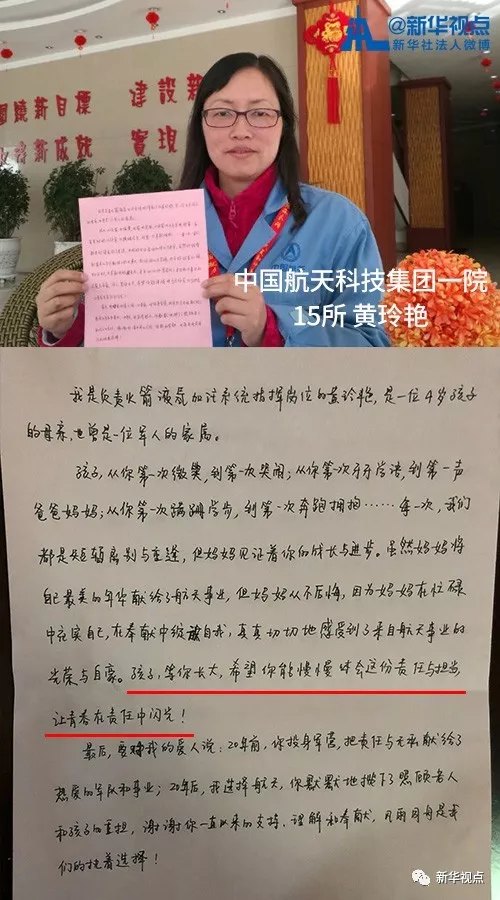 @新华视点
新华社法人微博
建设新
实现
中国航天科技集团一院
15所 黄玲艳
我是负责火箭液氢加注系统指挥岗位的黄玲艳,是一位4岁孩子
的母亲,也曾是一位军人的家属。
孩子,从你第一次微笑,到第一次哭闹;从你第一次牙牙学语,到第一声
爸爸妈妈;从你第一次蹒跚学步,到第一次奔跑拥抱……每一次,我们
都是短暂离别与重逢,但妈妈见证着你的成长与进步。虽然妈妈将
自己最美的年华献给了航天事业,但妈妈从不后悔,因为妈妈在忙碌
中充实自己,在奉献中绽放自我,真真切切地感受到了来自航天事业的
光荣与自豪。孩子,等你长大,希望你能慢慢体会这份责任与担当,
让青春在责任中闪光!
最后,要对我的爱人说:20年前,你投身军营,把责任与无私献给了
热爱的军队和事业;20年后,我选择航天,你默默地揽下了照顾老人
和孩子的重担,谢谢你一直以来的支持、理解和奉献,风雨同舟是我
们的执着选择!
新华视点